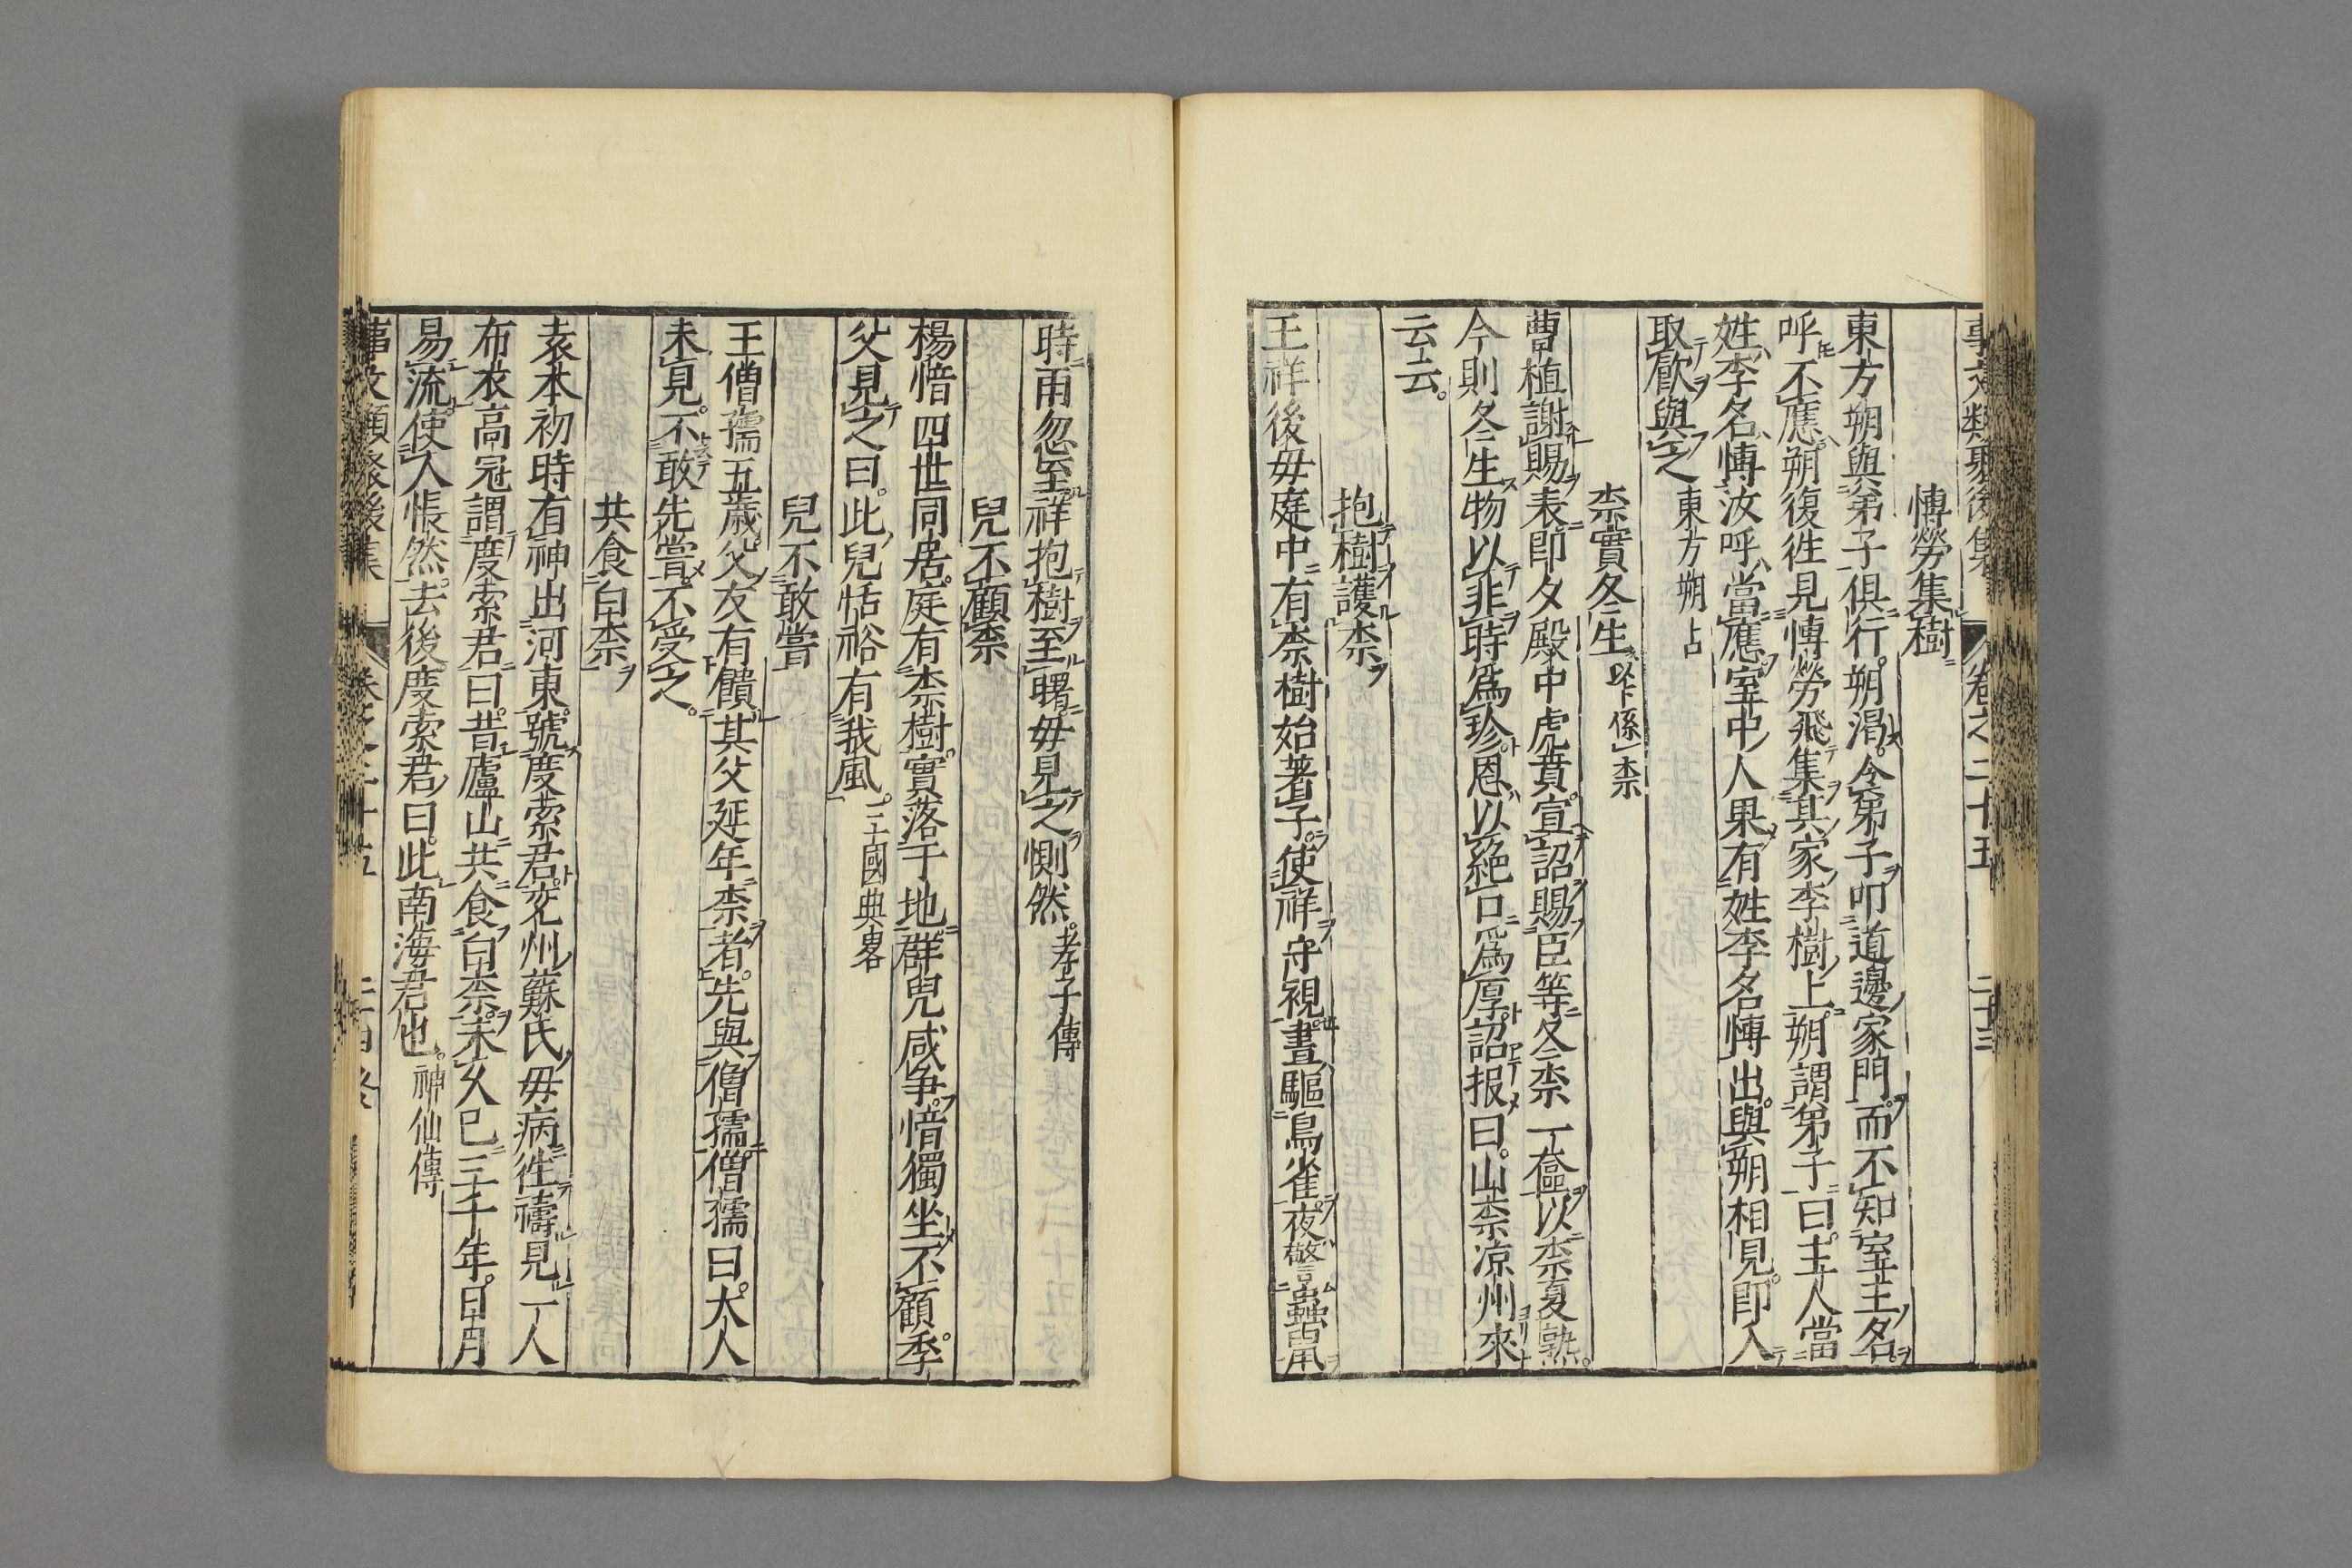 事文類聚後集 卷之二十五 二十三
慱勞集樹
東方朔與弟子俱行朔渴令弟子叩道邊家門而不知室主名
呼不應朔復徃見慱勞飛集其家李樹上朔謂弟子曰主人當
姓李名慱汝呼當應室中人果有姓李名慱出與朔相見即入
取飮與之 東方朔占
柰實冬生 以下係柰
曹植謝賜表即夕殿中虎賁宣詔賜臣等冬柰一奩以柰夏熟
今則冬生物以非時爲珍恩以絶口爲厚詔报曰山柰凉州來
云云
抱樹護柰
王祥後毋庭中有柰樹始著子使祥守視晝驅鳥雀夜警蟲鼠
時雨忽至祥抱樹至曙毋見之惻然 孝子傳
兒不顧柰
楊愔四世同居庭有柰樹實落于地群兒咸争愔獨坐不顧季
父見之曰此兒恬裕有我風 三國典畧
兒不敢嘗
王僧孺五歲父友有饋其父延年柰者先與僧孺僧孺曰大人
未見不敢先嘗不受之
共食白柰
袁本初時有神出河東號度索君兖州蘇氏毋病徃禱見一人
布衣高冠謂度索君曰昔廬山共食白柰未久已三千年日月
易流使人悵然去後度索君曰此南海君也 神仙傳
事文類聚後集 卷之二十五